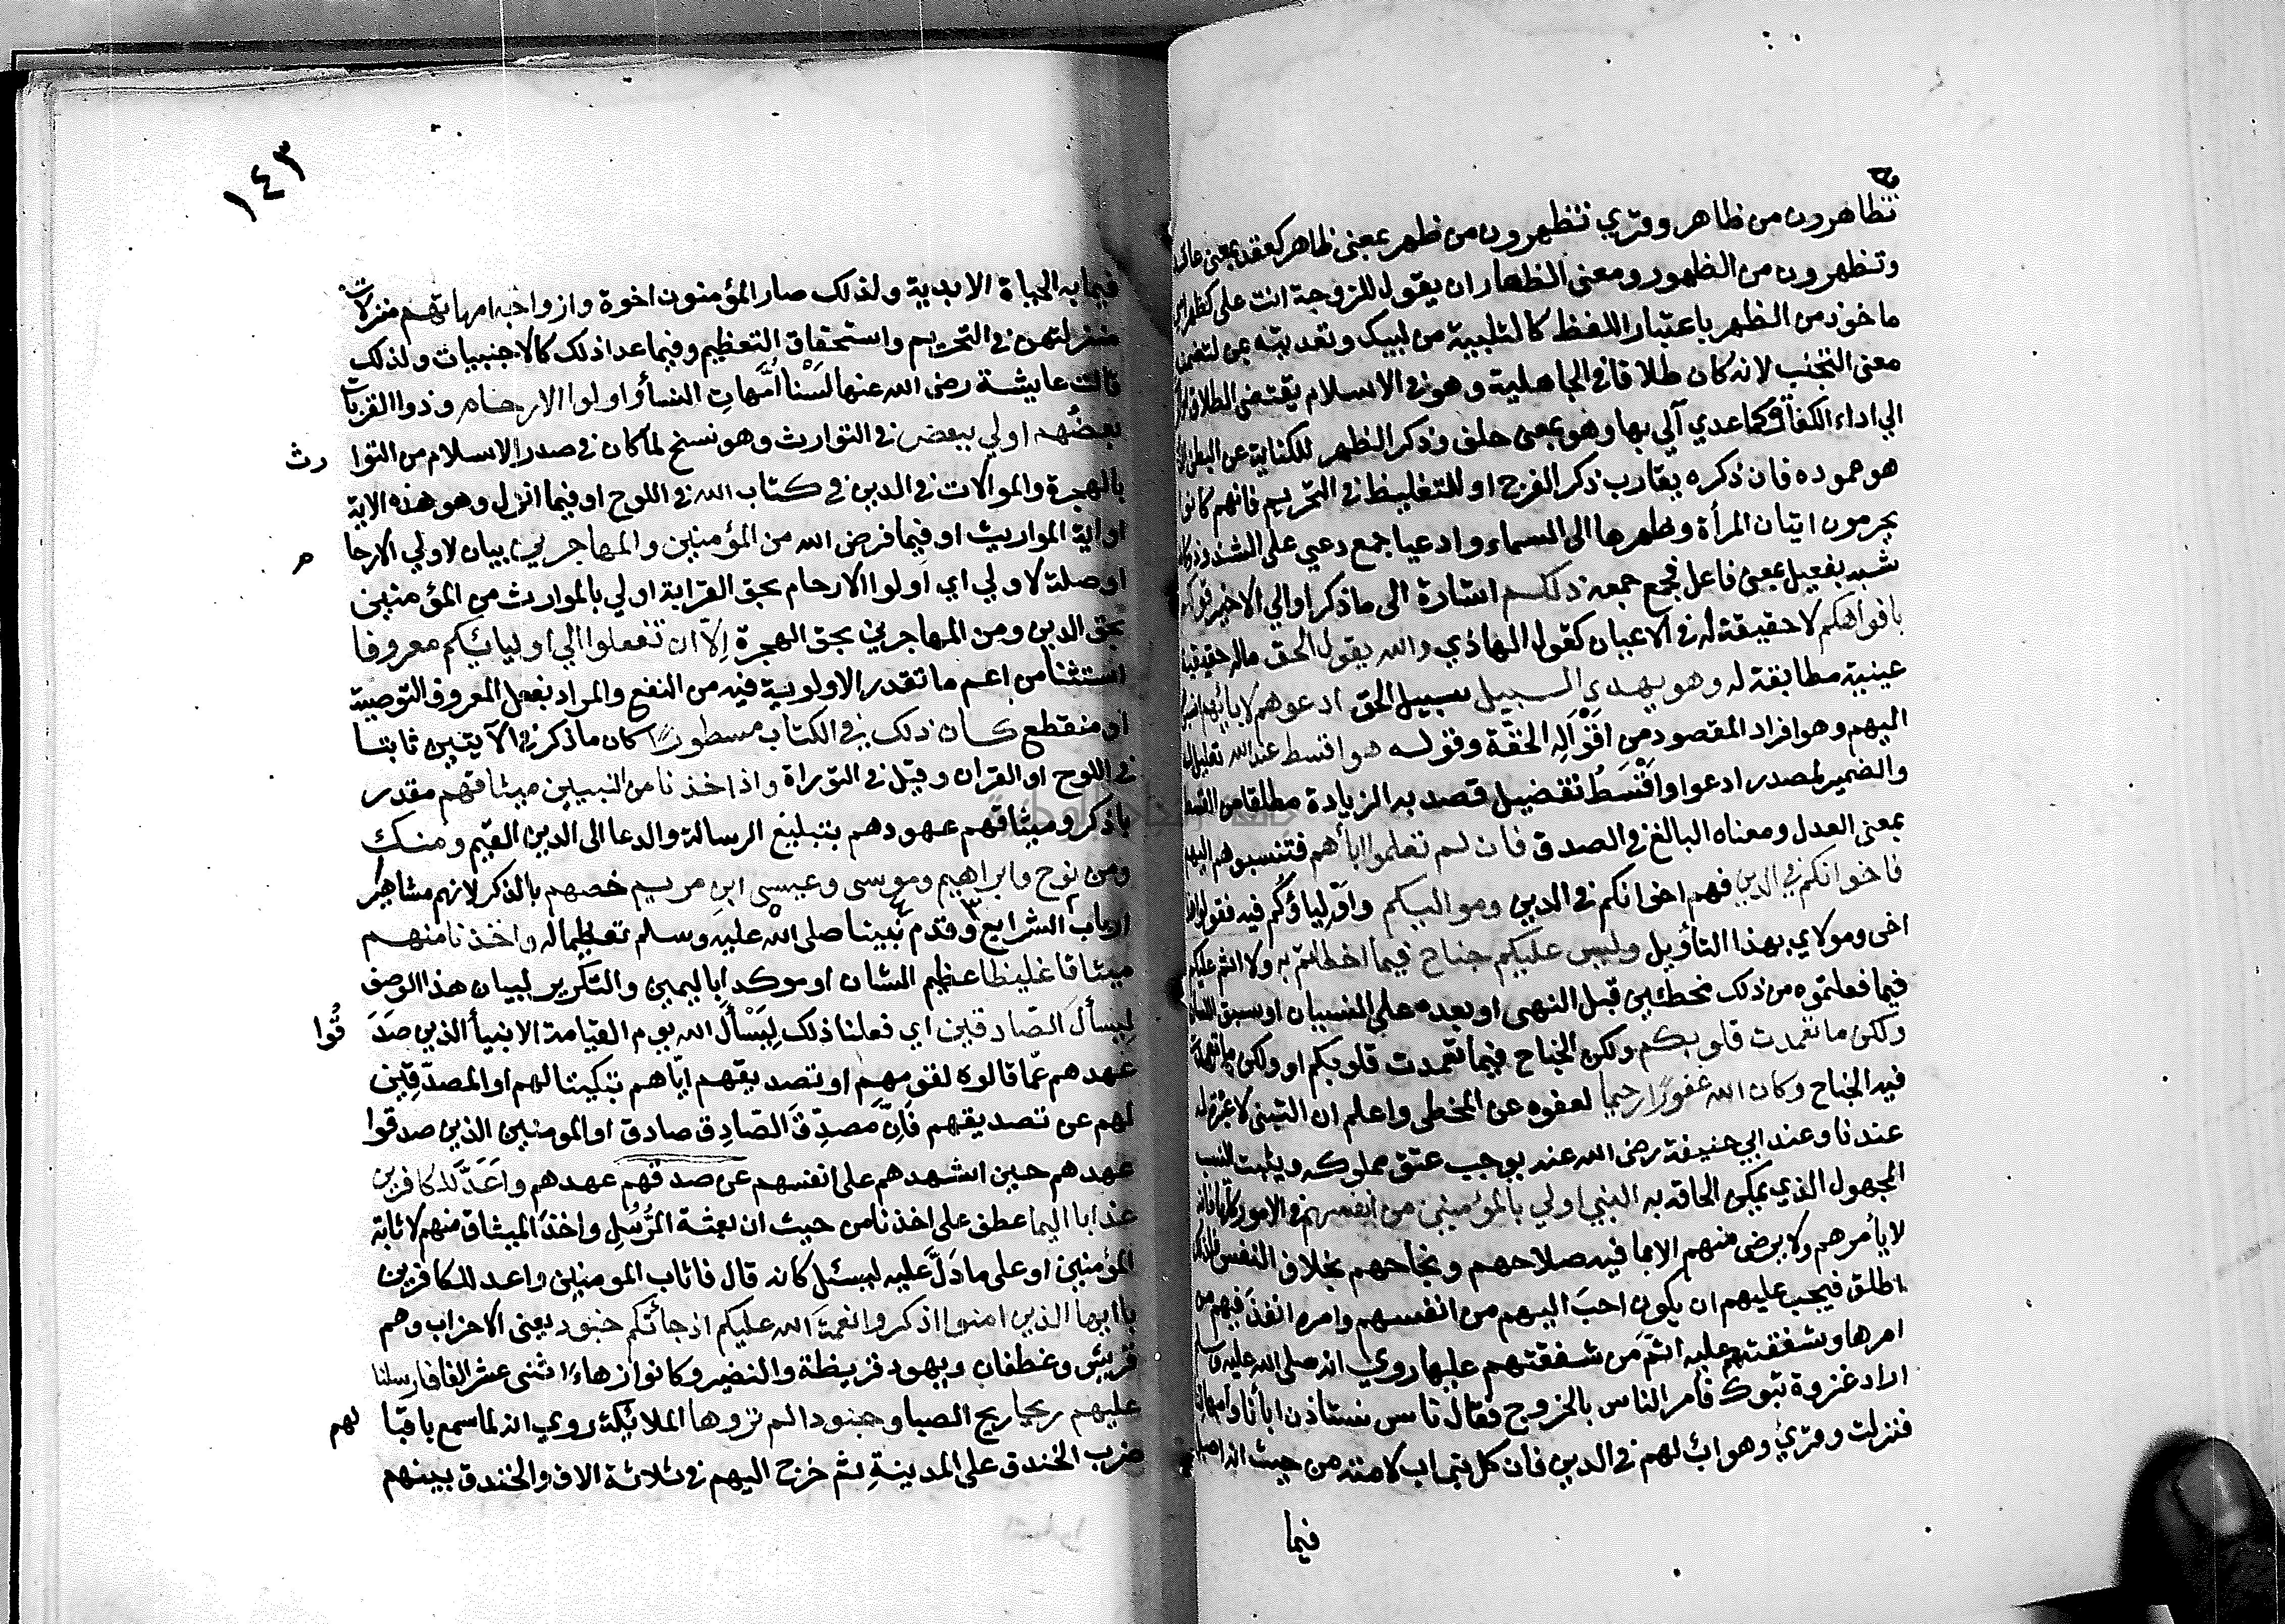 تظاهرون من ظاهر وقري تظهرون من ظهر بمعنى ظاهر كعقد بمعنى عاقد
وتظهرون من الظهور ومعنى الظهار ان يقول للزوجة انت على كظهر امي
ماخوذ من الظهر باعتبار اللفظ كالتلبية من لبيك وتعديته بمن لتضمنه
معنى التجنب لانه كان طلاقا في الجاهلية وهو في الاسلام يقتضي الطلاق
الي اداء الكفارة كما عدي آلي بها وهو بمعنى حلف وذكر الظهر للكناية عن البطن
هو عموده فان ذكره يقارب ذكر الفرج او للتغليظ في التحريم فانهم كانوا
يحرمون اتيان المرأة وظهرها الى السماء وادعيا جمع دعي على الشذوذ
شبه بفعيل بمعنى فاعل فجمع جمعه ذلكم اشارة الى ما ذكر او الي الاخير قولكم
بافواهكم لا حقيقة له في الاعيان كقول الهاذي والله يقول الحق ماله حقيقة
عينية مطابقة له وهو يهدي السبيل سبيل الحق ادعوهم لابائهم
اليهم وهو افراد المقصود من اقواله الحقة وقوله هو اقسط عند الله تعليل
والضمير لمصدر ادعوا واقسط تفضيل قصد به الزيادة مطلقا من القسط
بمعنى العدل ومعناه البالغ في الصدق فان لم تعلموا ابأهم فتنسبوهم اليهم
فاخوانكم في الدين فهم اخوانكم في الدين ومواليكم واولياؤكم فيه فقولوا
اخى ومولاي بهذا التأويل وليس عليكم جناح فيما اخطاتم به ولا اثم عليكم
فيما فعلتموه من ذلك مخطئين قبل النهى او بعده على النسيان او سبق اللسان
ولكن ما تعمدت قلوبكم ولكن الجناح فيما تعمدت قلوبكم او ولكن ما تعمدت
فيه الجناح وكان الله غفورا رحيما لعفوه عن المخطى واعلم ان التبنى لا عبرة له
عندنا وعند ابي حنيفة رضى الله عنه يوجب عتق مملوكه ويثبت النسب
المجهول الذي يمكن الحاقه به النبي اولي بالمؤمنين من انفسهم في الامور كلها فانه
لا يأمرهم ولا يرضى منهم الا بما فيه صلاحهم ونجاحهم بخلاف النفس فلذلك
اطلق فيجب عليهم ان يكون احب اليهم من انفسهم وامره انفذ فيهم من
امرها وشفقتهم عليه اتم من شفقتهم عليها روي انه صلى الله عليه وسلم
اراد غزوة تبوك فأمر الناس بالخروج فقال ناس نستاذن ابأنا وامهاتنا
فنزلت وقري وهو اب لهم في الدين فان كل نبي اب لامته من حيث انه اصل
فيما
١٤٣
فيما به الحياة الابدية ولذلك صار المؤمنون اخوة وازواجه امهاتهم منزلات
منزلتهن في التحريم واستحقاق التعظيم وفيما عدا ذلك كالاجنبيات ولذلك
قالت عايشة رضى الله عنها لسنا امهات النسأ واولوا الارحام وذوا القربات
بعضهم اولي ببعض في التوارث وهو نسخ لما كان في صدر الاسلام من التوارث
بالهجرة والموالات في الدين في كتاب الله في اللوح او فيما انزل وهو هذه الاية
او اية المواريث او فيما فرض الله من المؤمنين والمهاجرين بيان لاولي الارحام
او صلة لاولي اي اولوا الارحام بحق القرابة اولي بالموارث من المؤمنين
بحق الدين ومن المهاجرين بحق الهجرة الا ان تفعلوا الي اوليائكم معروفا
استثنا من اعم ما تقدر الاولوية فيه من النفع والمراد بفعل المعروف التوصية
او منقطع كان ذلك في الكتاب مسطورا كان ما ذكر في الآيتين ثابتا
في اللوح او القران وقيل في التوراة واذ اخذنا من النبيين ميثاقهم مقدر
باذكر وميثاقهم عهودهم بتبليغ الرسالة والدعا الى الدين القيم ومنك
ومن نوح وابراهيم وموسى وعيسى ابن مريم خصهم بالذكر لانهم مشاهير
ارباب الشرايع وقدم نبينا صلى الله عليه وسلم تعظيما له واخذنا منهم
ميثاقا غليظا عظيم الشان او موكدا باليمين والتكرير لبيان هذا الوصف
ليسأل الصادقين اي فعلنا ذلك ليسأل الله يوم القيامة الانبيأ الذين صدقوا
عهدهم عما قالوه لقومهم او تصديقهم اياهم تبكيتا لهم او المصدقين
لهم عن تصديقهم فان مصدق الصادق صادق او المومنين الذين صدقوا
عهدهم حين اشهدهم على انفسهم عن صدقهم عهدهم واعد للكافرين
عذابا اليما عطف على اخذنا من حيث ان بعثة الرسل واخذ الميثاق منهم لاثابة
المؤمنين او على ما دل عليه ليسئل كانه قال فاثاب المومنين واعد للكافرين
يا ايها الذين امنوا اذكروا نعمة الله عليكم اذ جائتكم جنود يعنى الاحزاب وهم
قريش وغطفان ويهود قريظة والنضير وكانوا زهاء اثنى عشر الفا فارسلنا
عليهم ريحا ريح الصبا وجنودا لم تروها الملائكة روي انه لما سمع باقبالهم
ضرب الخندق على المدينة ثم خرج اليهم في ثلاثة الاف والخندق بينهم